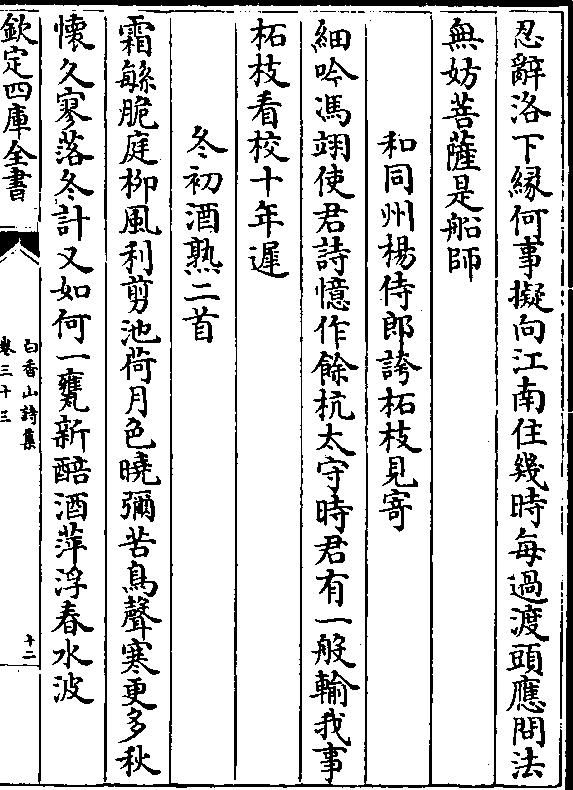 忍辭洛下縁何事擬向江南住幾時每過渡頭應問法
無妨菩薩是船師
和同州楊侍郎誇柘枝見寄
細吟馮翊使君詩憶作餘杭太守時君有一般輸我事
柘枝看校十年遲
冬初酒熟二首
霜繁脆庭栁風利剪池荷月色曉彌苦鳥聲寒更多秋
懐久寥落冬計又如何一甕新醅酒萍浮春水波
欽定四庫全書
白香山詩集
卷三十三
十二